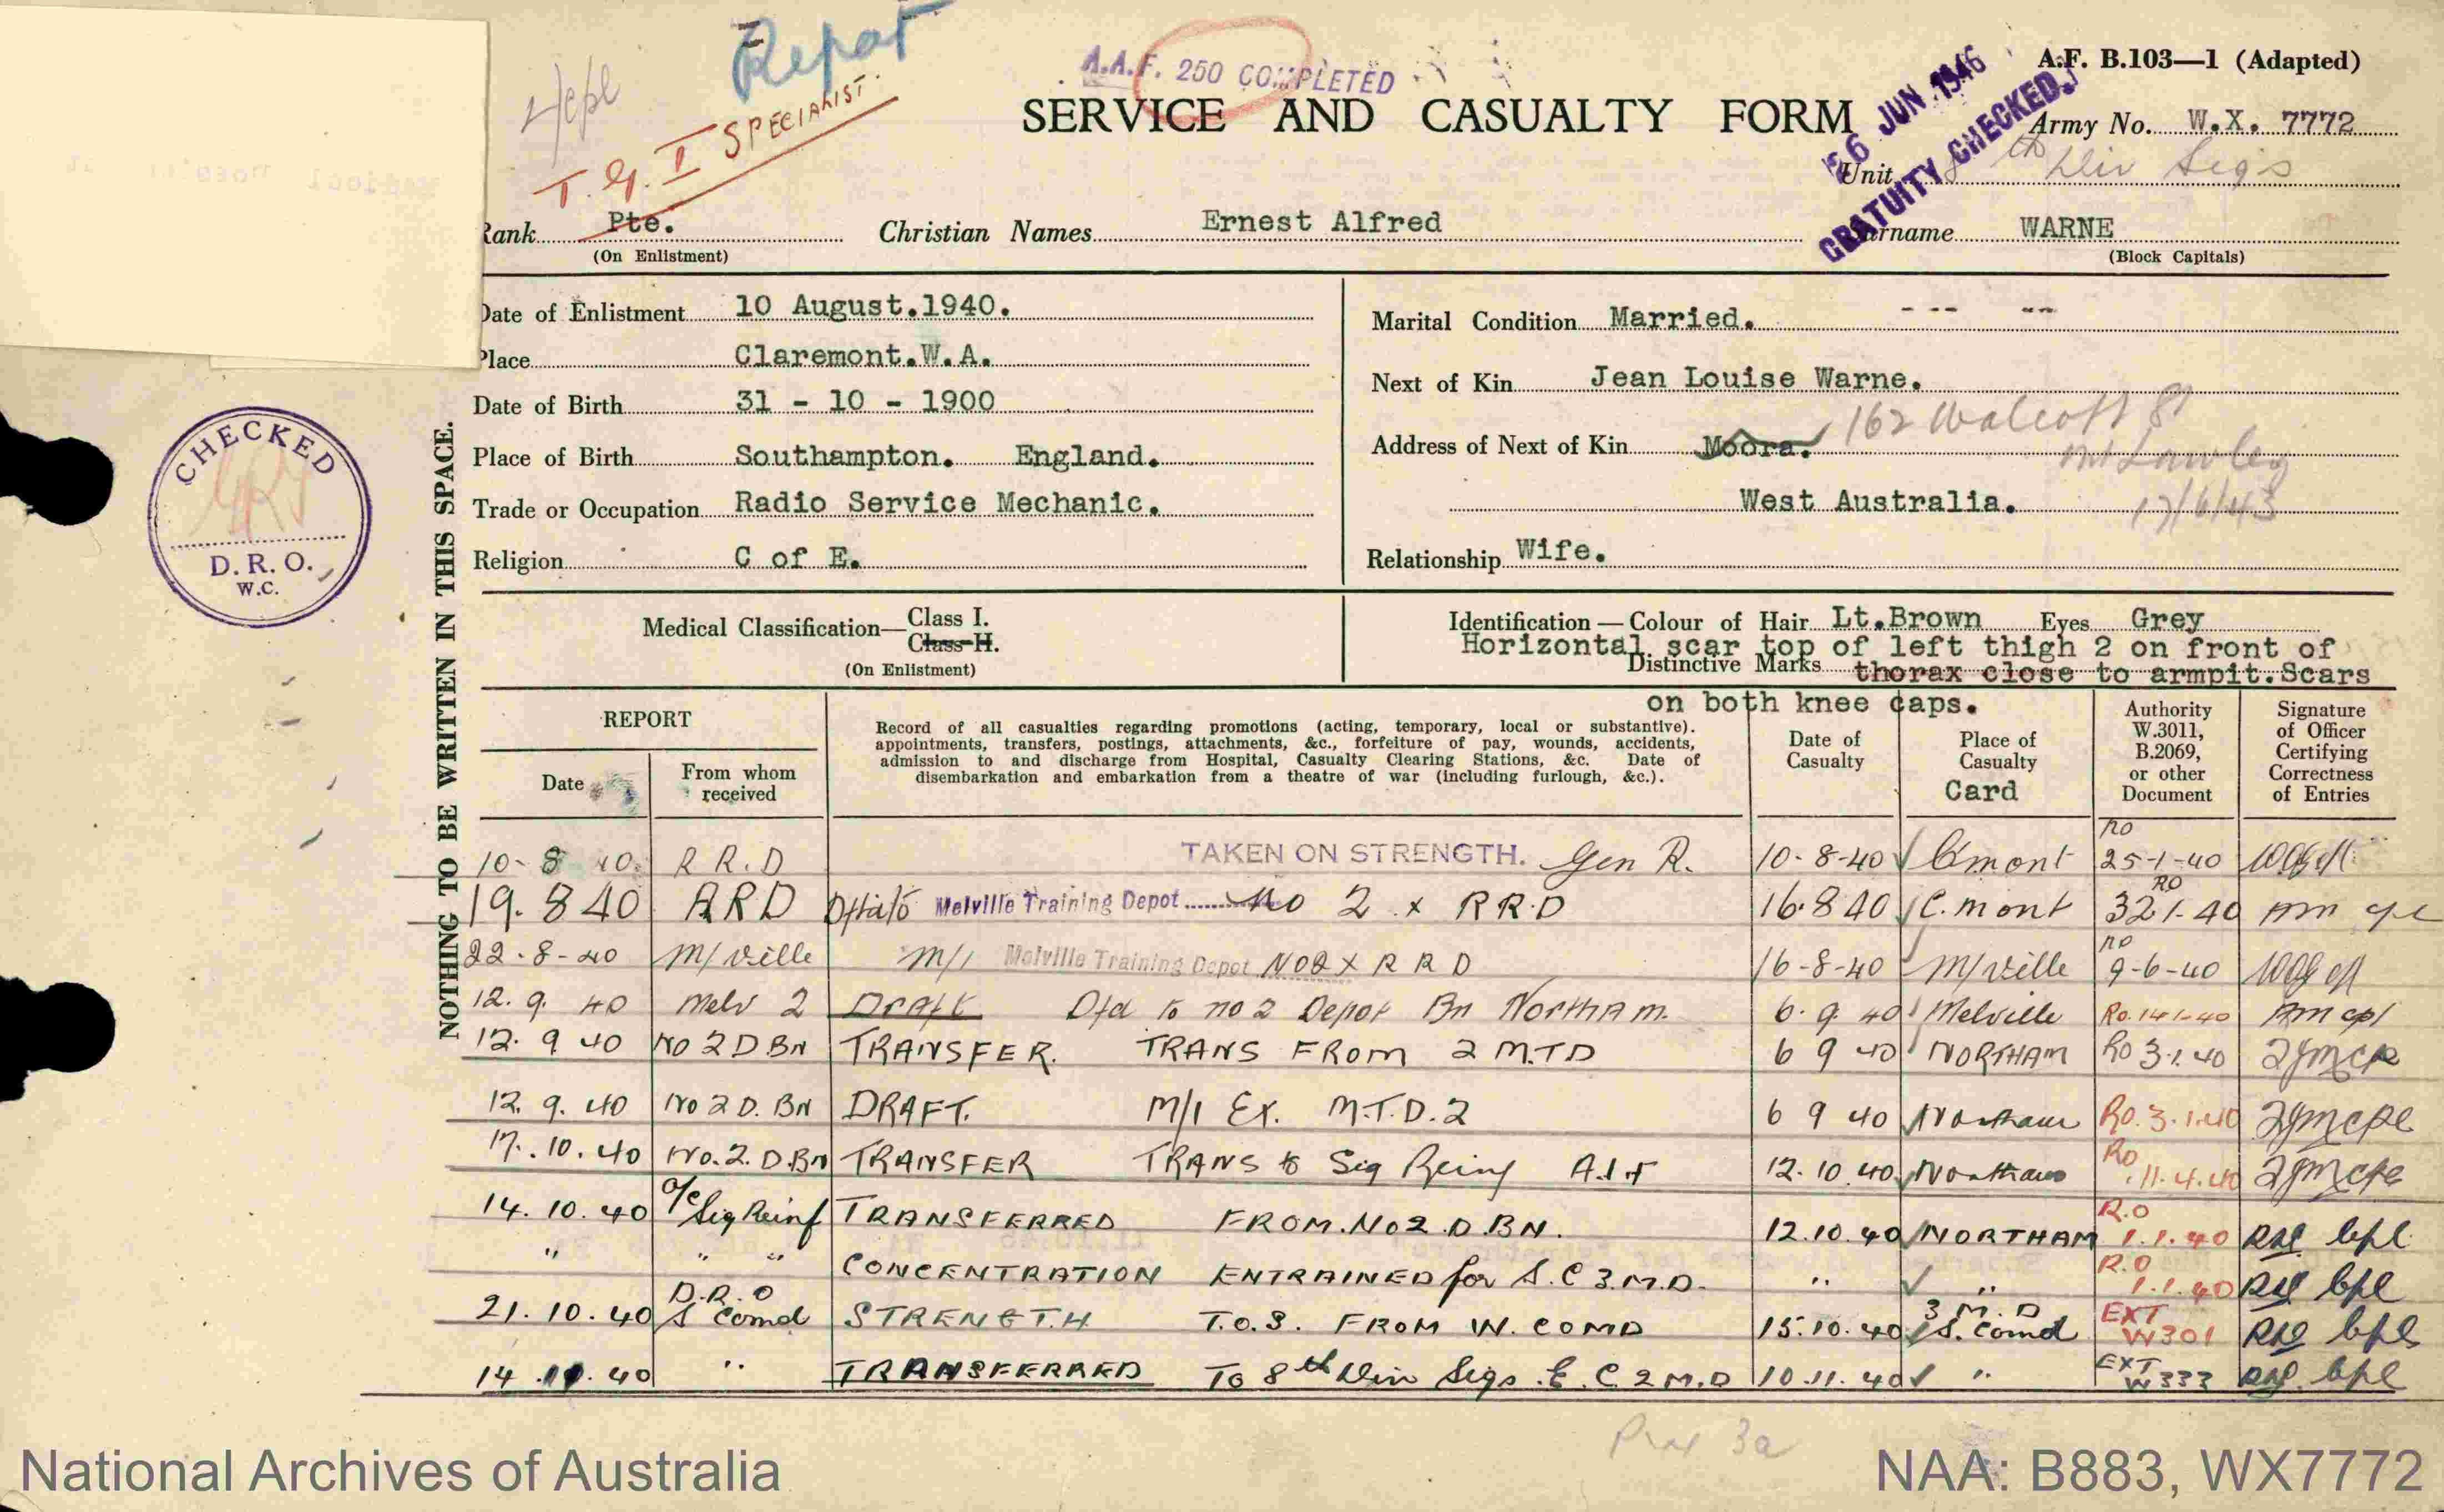 Repat
A.A.F. 250 COMPLETED
A.F. B.103—1 (Adapted)
T.G. I SPECIALIST.
SERVICE AND CASUALTY FORM
26 JUN 1946
GRATUITY CHECKED.
Army No. W.X. 7772
Unit 8th Div Sigs
Rank Pte. Christian Names Ernest Alfred Surname WARNE
(On Enlistment) (Block Capitals)
Date of Enlistment 10 August.1940.
Place Claremont.W.A.
Date of Birth 31 - 10 - 1900
Place of Birth Southampton. England.
Trade or Occupation Radio Service Mechanic.
Religion C of E.
Marital Condition Married.
Next of Kin Jean Louise Warne.
Address of Next of Kin Moora. 162 Walcott St
Mt Lawley
West Australia. 17/6/43
Relationship Wife.
CHECKED
D.R.O.
W.C.
NOTHING TO BE WRITTEN IN THIS SPACE.
Medical Classification— Class I.
Class H.
(On Enlistment)
Identification — Colour of Hair Lt.Brown Eyes Grey
Horizontal scar top of left thigh 2 on front of
Distinctive Marks thorax close to armpit.Scars
on both knee caps.
REPORT
Date
From whom received
Record of all casualties regarding promotions (acting, temporary, local or substantive).
appointments, transfers, postings, attachments, &c., forfeiture of pay, wounds, accidents,
admission to and discharge from Hospital, Casualty Clearing Stations, &c. Date of
disembarkation and embarkation from a theatre of war (including furlough, &c.).
Date of Casualty
Place of Casualty
Card
Authority W.3011, B.2069, or other Document
Signature of Officer Certifying Correctness of Entries
10-8 40. R R.D TAKEN ON STRENGTH. Gen R. 10-8-40 C'mont RO 25-1-40
19.8 40 ARD Melville Training Depot No 2 x RRD 16.8 40 C.mont RO 32.1-40
22-8-40 M/ville M/I Melville Training Depot NO2 X R R D 16-8-40 M/ville RO 9-6-40
12.9. 40 Melv 2 Draft Dfd to no 2 Depot Bn Northam. 6.9.40 Melville Ro.141-40
12.9 40 NO 2 D BN TRANSFER. TRANS FROM 2 M.T.D 6 9 40 NORTHAM Ro 3.1.40
12.9.40 No 2 D. BN DRAFT. M/I Ex. M.T.D.2 6 9 40 Northam Ro.3.1.40
17.10.40 No.2.D.BN TRANSFER TRANS to Sig Reinf A.I.F 12.10.40 Northam Ro 11.4.40
14.10.40 O/C Sig Reinf TRANSFERRED FROM.NO2.D.BN. 12.10.40 NORTHAM R.O 1.1.40
" " " CONCENTRATION ENTRAINED for S.C 3.M.D. " " R.O 1.1.40
21.10.40 D.R.O S Comd STRENGTH T.O.S. FROM W. COMD 15.10.40 3 M.D S. Comd EXT W301
14.11.40 " TRANSFERRED TO 8th Div Sigs E.C 2 M.D 10.11.40 " EXT W333
National Archives of Australia
NAA: B883, WX7772